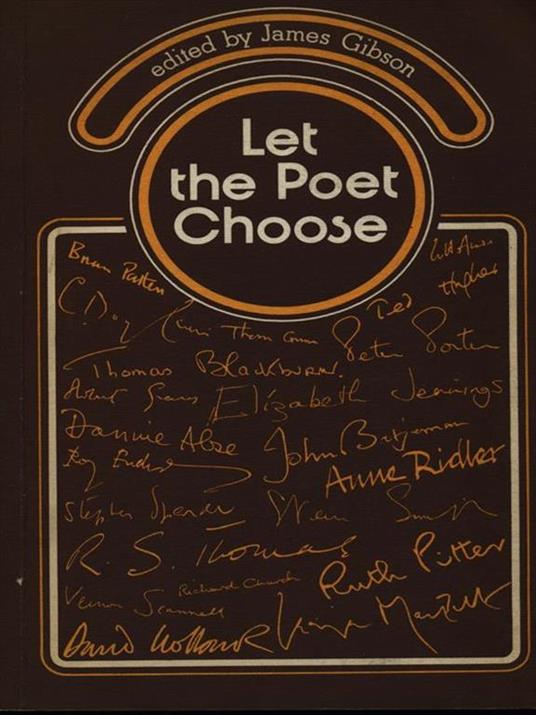 edited by James Gibson
Let
the Poet
Choose
Brian Patten
Ted Hughes
C. Day
Thom Gunn
Peter Porter
Thomas Blackburn.
Elizabeth Jennings
Dannie Abse
John Betjeman
Roy Fuller
Anne Ridler
Stephen Spender
R. S. Thomas
Ruth Pitter
Richard Church
Vernon Scannell
David Holbrook